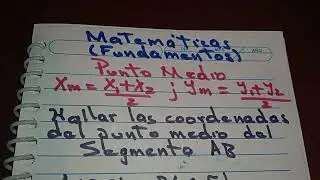 Matemáticas
(Fundamentos)
Punto Medio
Xm = X₁+X₂/2 ; Ym = Y₁+Y₂/2
Hallar las coordenadas
del punto medio del
Segmento AB